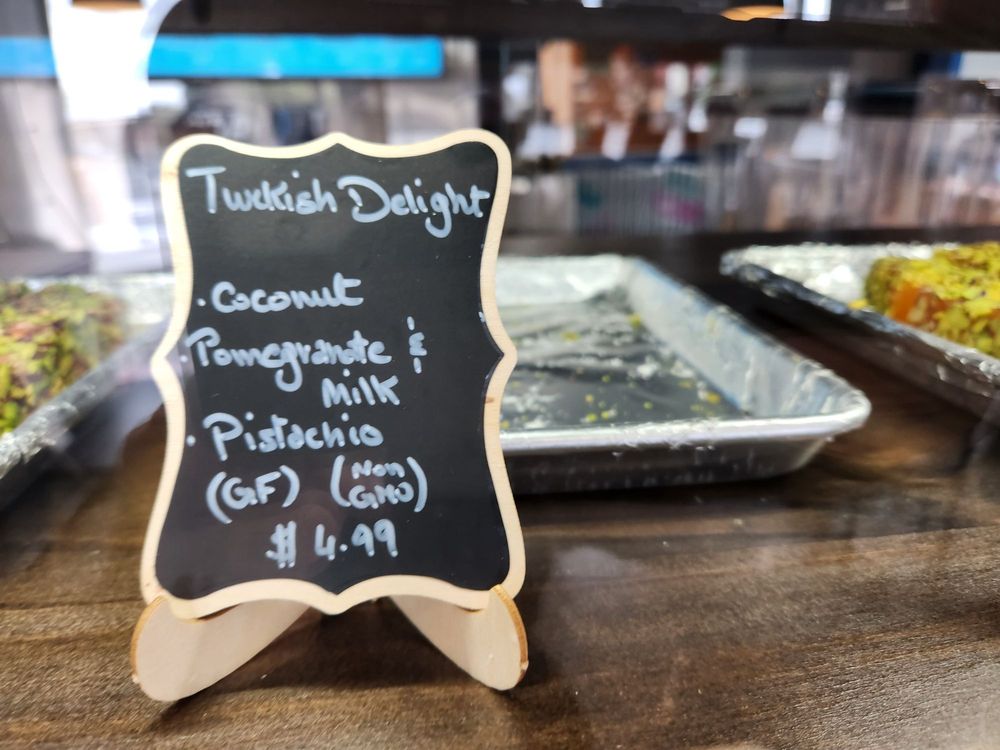 Turkish Delight
· Coconut
· Pomegranate &
Milk
· Pistachio
(GF) (Non
GMO)
$ 4.99